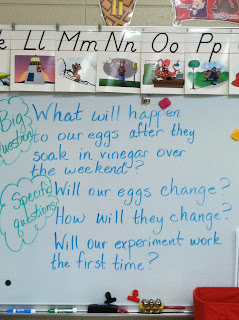 k Ll Mm Nn Oo Pp
Big
Question
What will happen
to our eggs after they
soak in vinegar over
the weekend?
Specific
questions
Will our eggs change?
How will they change?
Will our experiment work
the first time?